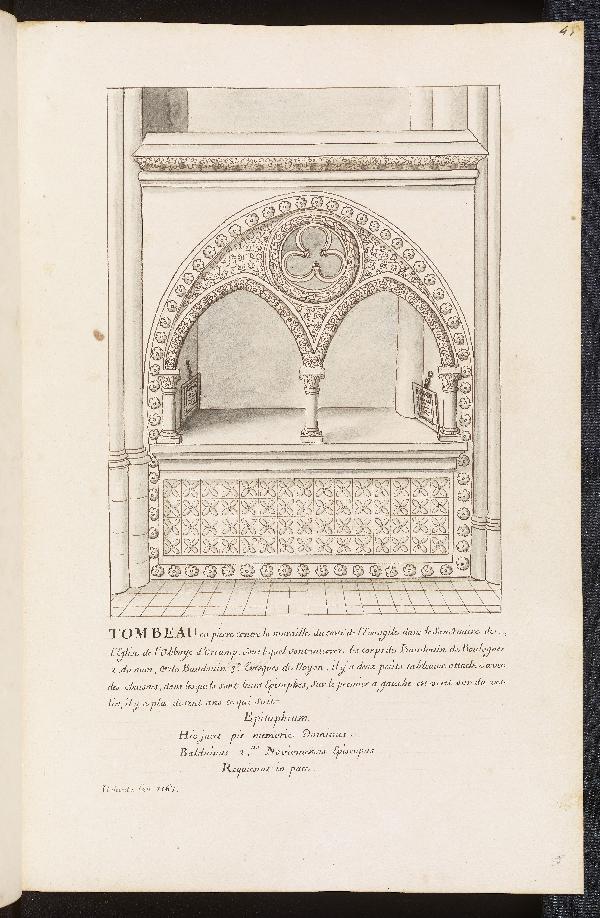 41
TOMBEAU en pierre contre la muraille du costé de l'Evangile dans le Sanctuaire de
l'Eglise de l'Abbaye d'Orcamp, sous lequel sont enterrez les corps de Baudouin de Boulogne
2. du nom, et de Baudouin 3e. Evesques de Noyon, il y a deux petits tableaux attachez avec
des chaisnes, dans lesquels sont leurs Epitaphes, sur le premier a gauche est ecrit sur du
il y a plus de cent ans ce qui suit.
Epitaphium.
Hic jacet piæ memoriæ Dominus.
Balduinus 2.us Noviomensis Episcopus
Requiescat in pace.